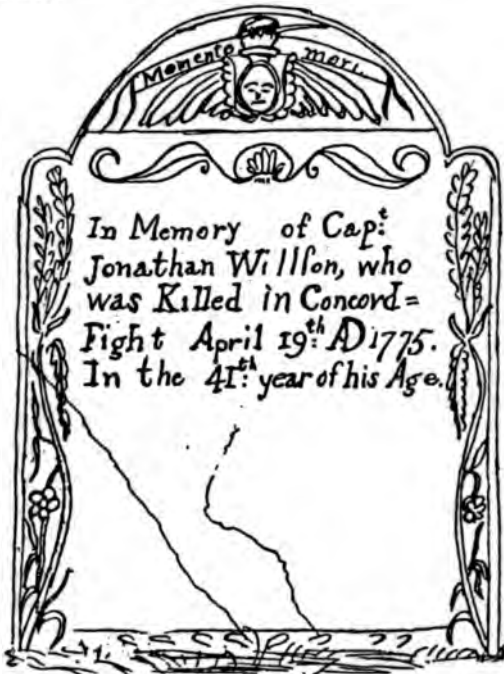 Momento mori.
In Memory of Capt.
Jonathan Willſon, who
was Killed in Concord=
Fight April 19.th AD 1775.
In the 41.th year of his Age.